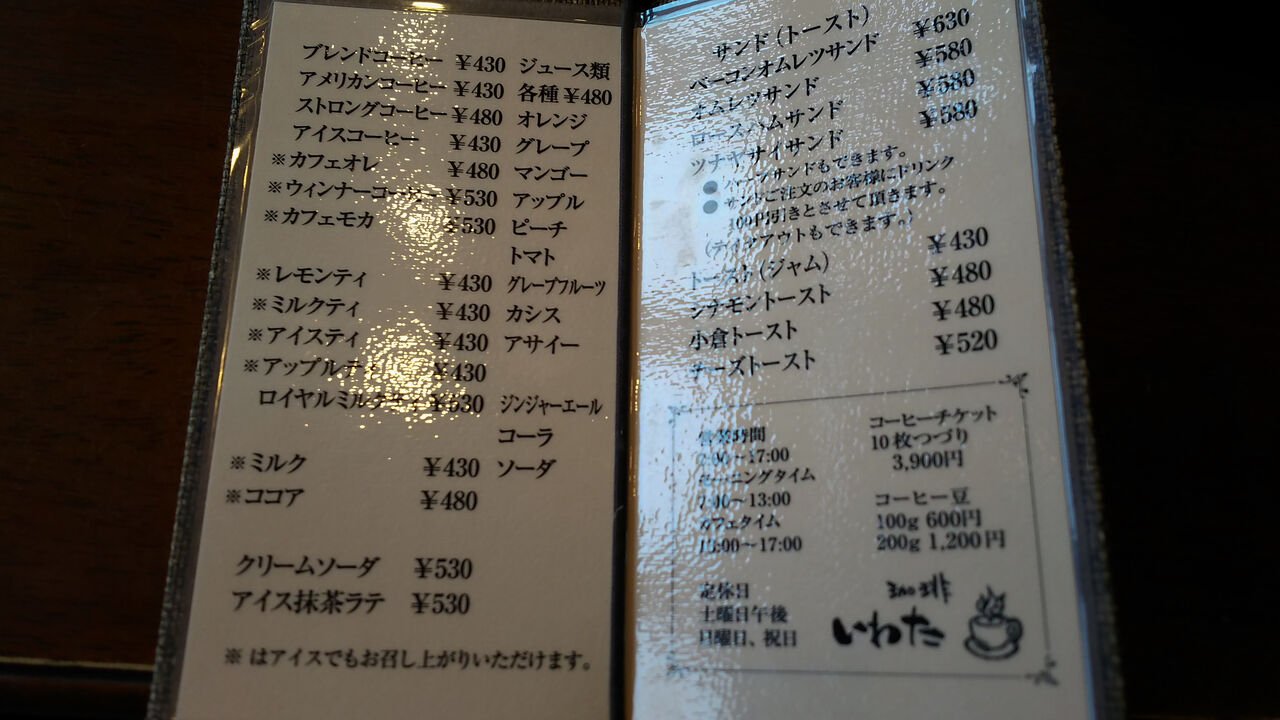 ブレンドコーヒー ¥430
アメリカンコーヒー ¥430
ストロングコーヒー ¥480
アイスコーヒー ¥430
※カフェオレ ¥480
※ウィンナーコーヒー ¥530
※カフェモカ ¥530
※レモンティ ¥430
※ミルクティ ¥430
※アイスティ ¥430
※アップルティ ¥430
ロイヤルミルクティ ¥530
※ミルク ¥430
※ココア ¥480
クリームソーダ ¥530
アイス抹茶ラテ ¥530
※はアイスでもお召し上がりいただけます。
ジュース類
各種¥480
オレンジ
グレープ
マンゴー
アップル
ピーチ
トマト
グレープフルーツ
カシス
アサイー
ジンジャーエール
コーラ
ソーダ
サンド(トースト)
ベーコンオムレツサンド ¥630
オムレツサンド ¥580
ロースハムサンド ¥580
ツナヤサイサンド ¥580
●ハーフサンドもできます。
●サンドご注文のお客様にドリンク
100円引きとさせて頂きます。
(テイクアウトもできます。)
トースト(ジャム) ¥430
シナモントースト ¥480
小倉トースト ¥480
チーズトースト ¥520
営業時間
7:00〜17:00
モーニングタイム
〜13:00
カフェタイム
13:00〜17:00
定休日
土曜日午後
日曜日、祝日
コーヒーチケット
10枚つづり
3,900円
コーヒー豆
100g 600円
200g 1,200円
珈琲
いわた